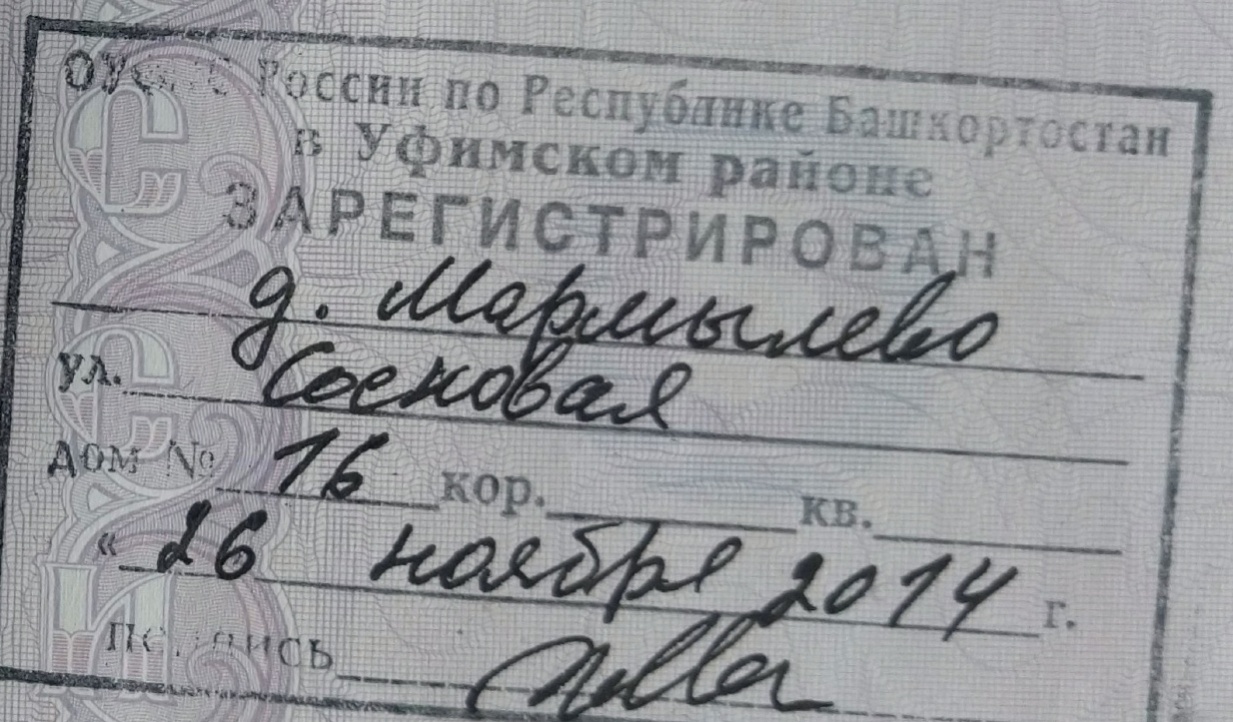 России по Республике Башкортостан
в Уфимском районе
ЗАРЕГИСТРИРОВАН
д. Мармылево
ул. Сосновая
дом № 16 кор. кв.
« 26 ноября 2014 г.
Подпись